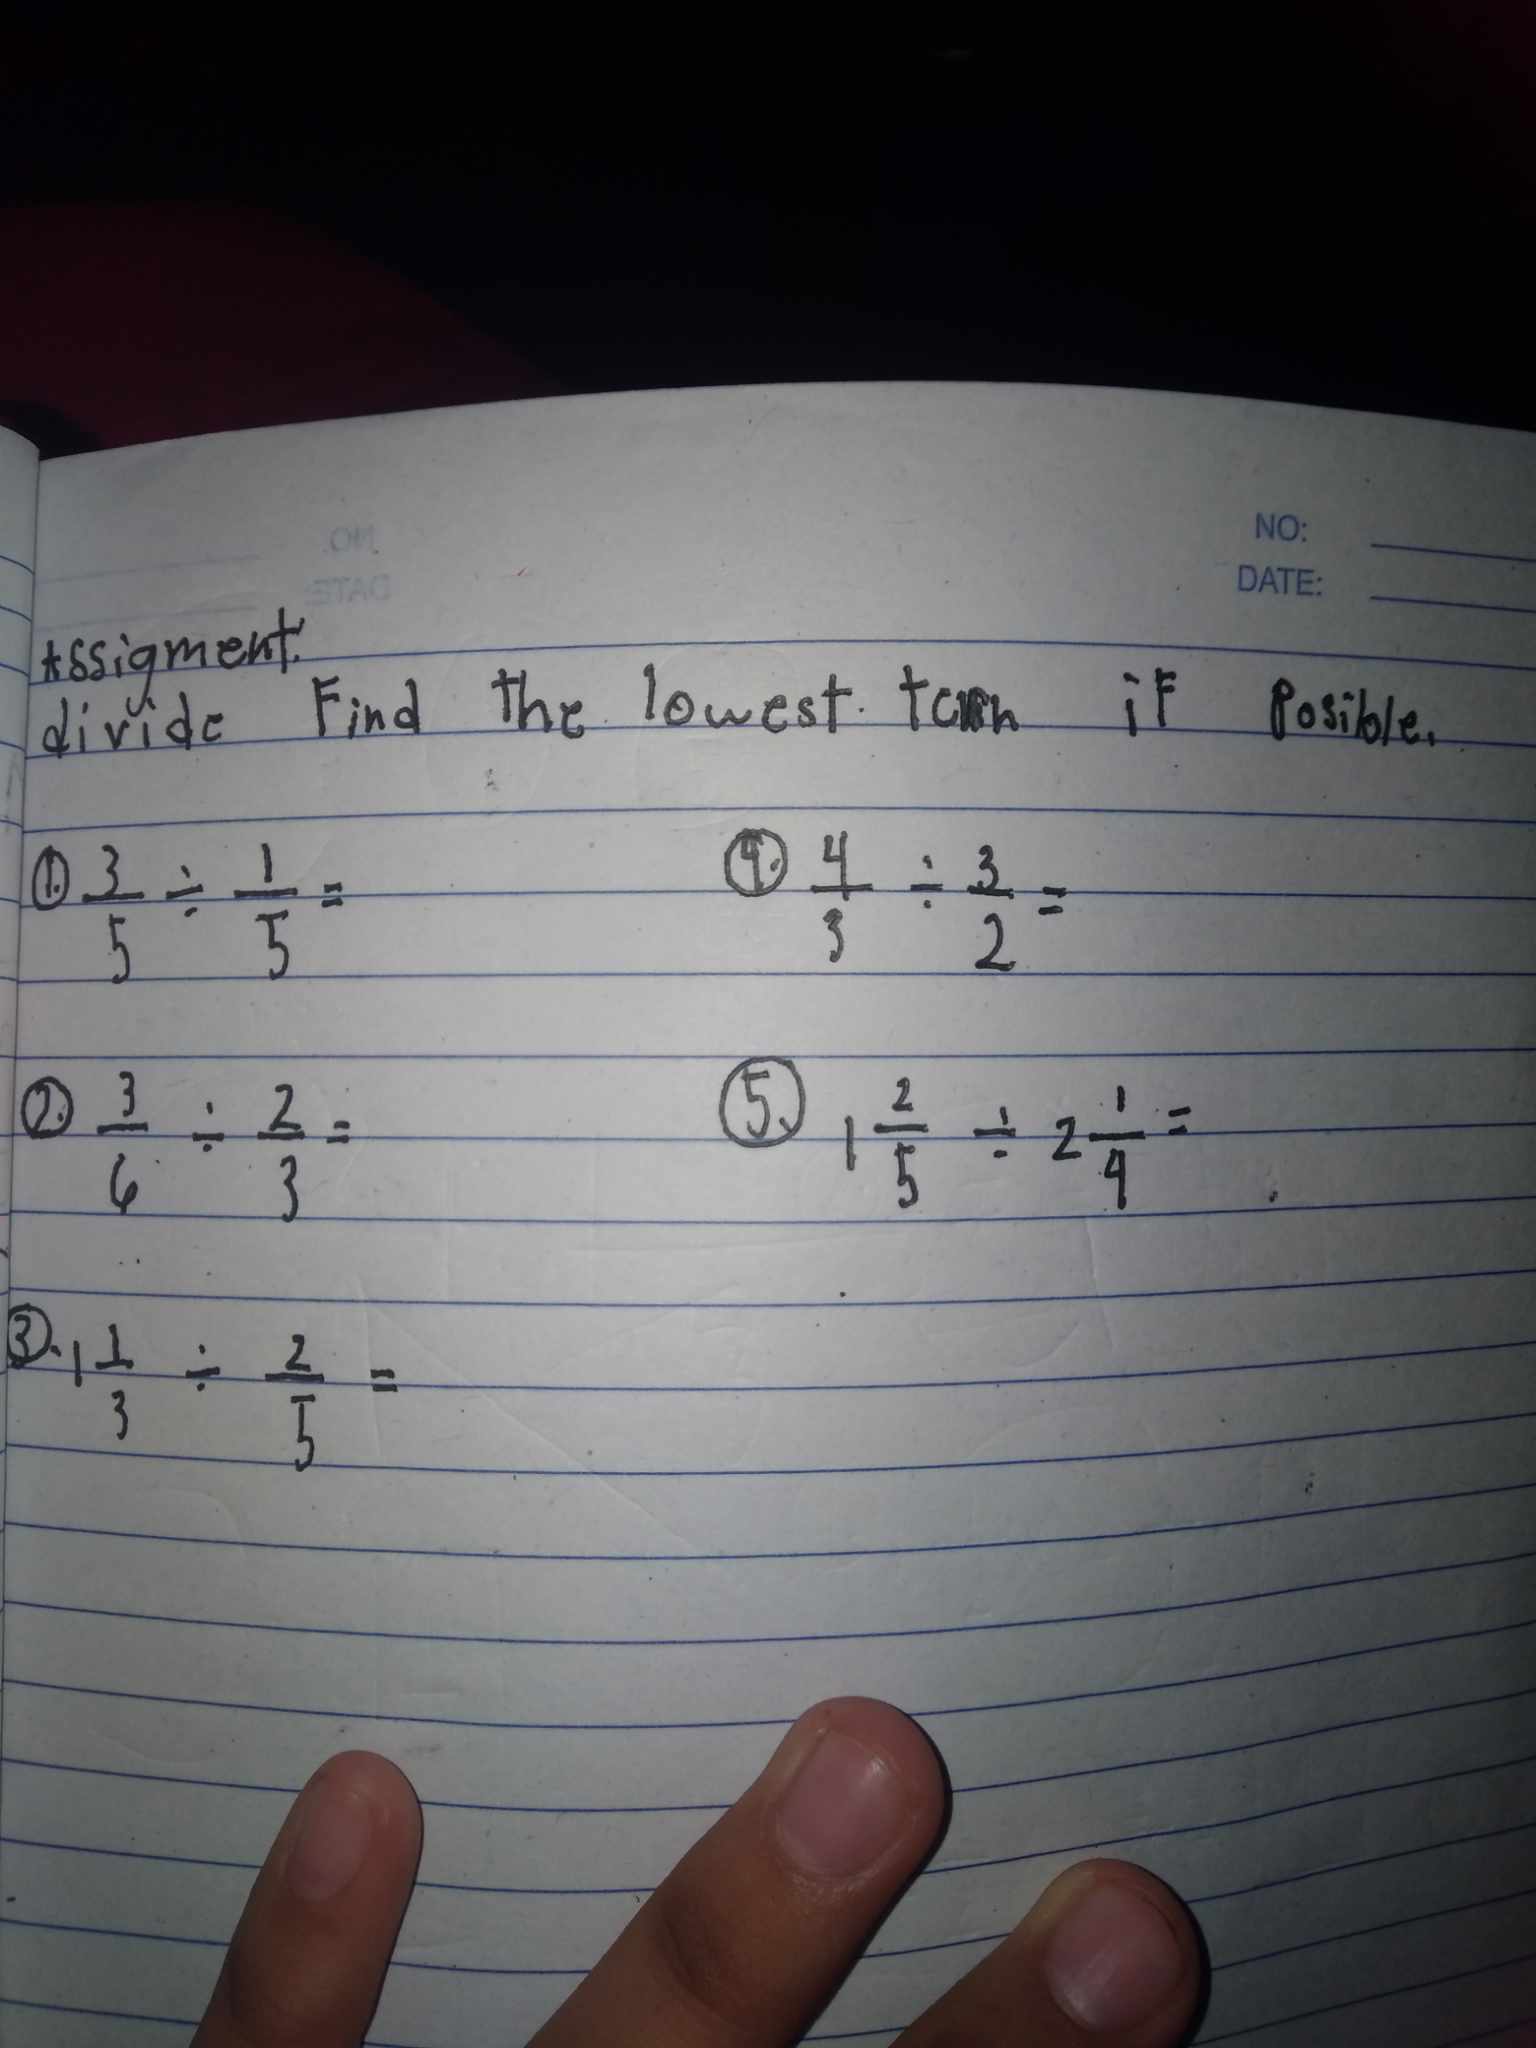 NO:
DATE:
Assigment:
divide Find the lowest term if Posible.
1. 3/5 ÷ 1/5 =
4. 4/3 ÷ 3/2 =
2. 3/6 ÷ 2/3 =
5. 1 2/5 ÷ 2 1/4 =
3. 1 1/3 ÷ 2/5 =